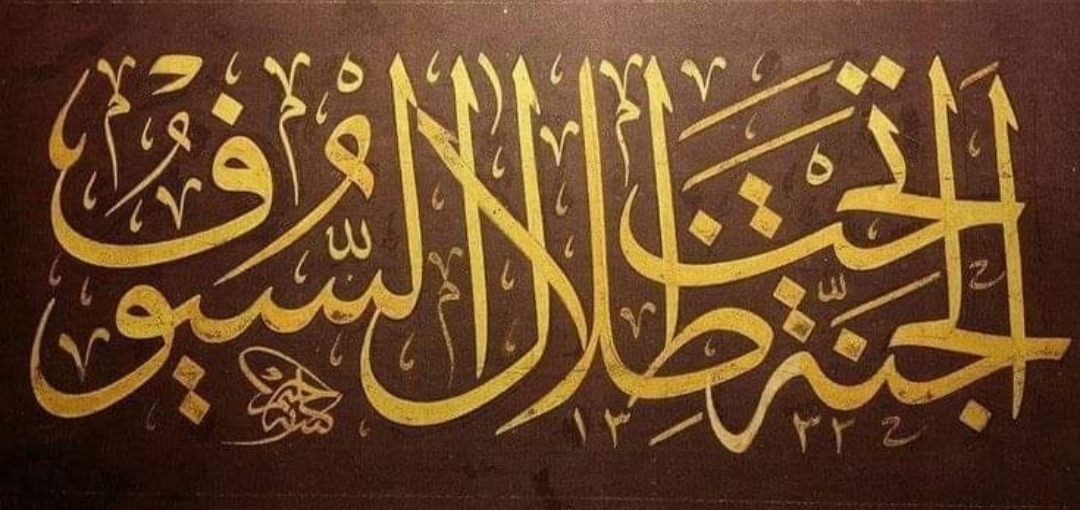 الجنة تحت ظلال السيوف
١٣٣٢